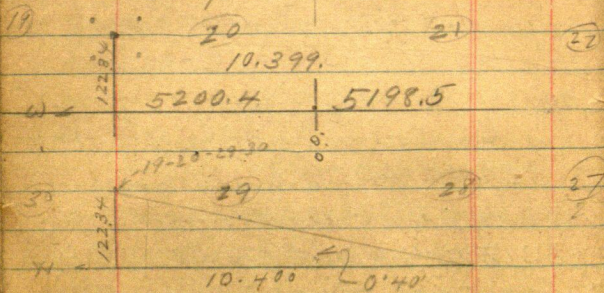 19 20 21 22
10.399.
122.84
W 5200.4 5198.5
0.0
19-20-29-30
30 29 28 27
122.34
10.400 0°40'